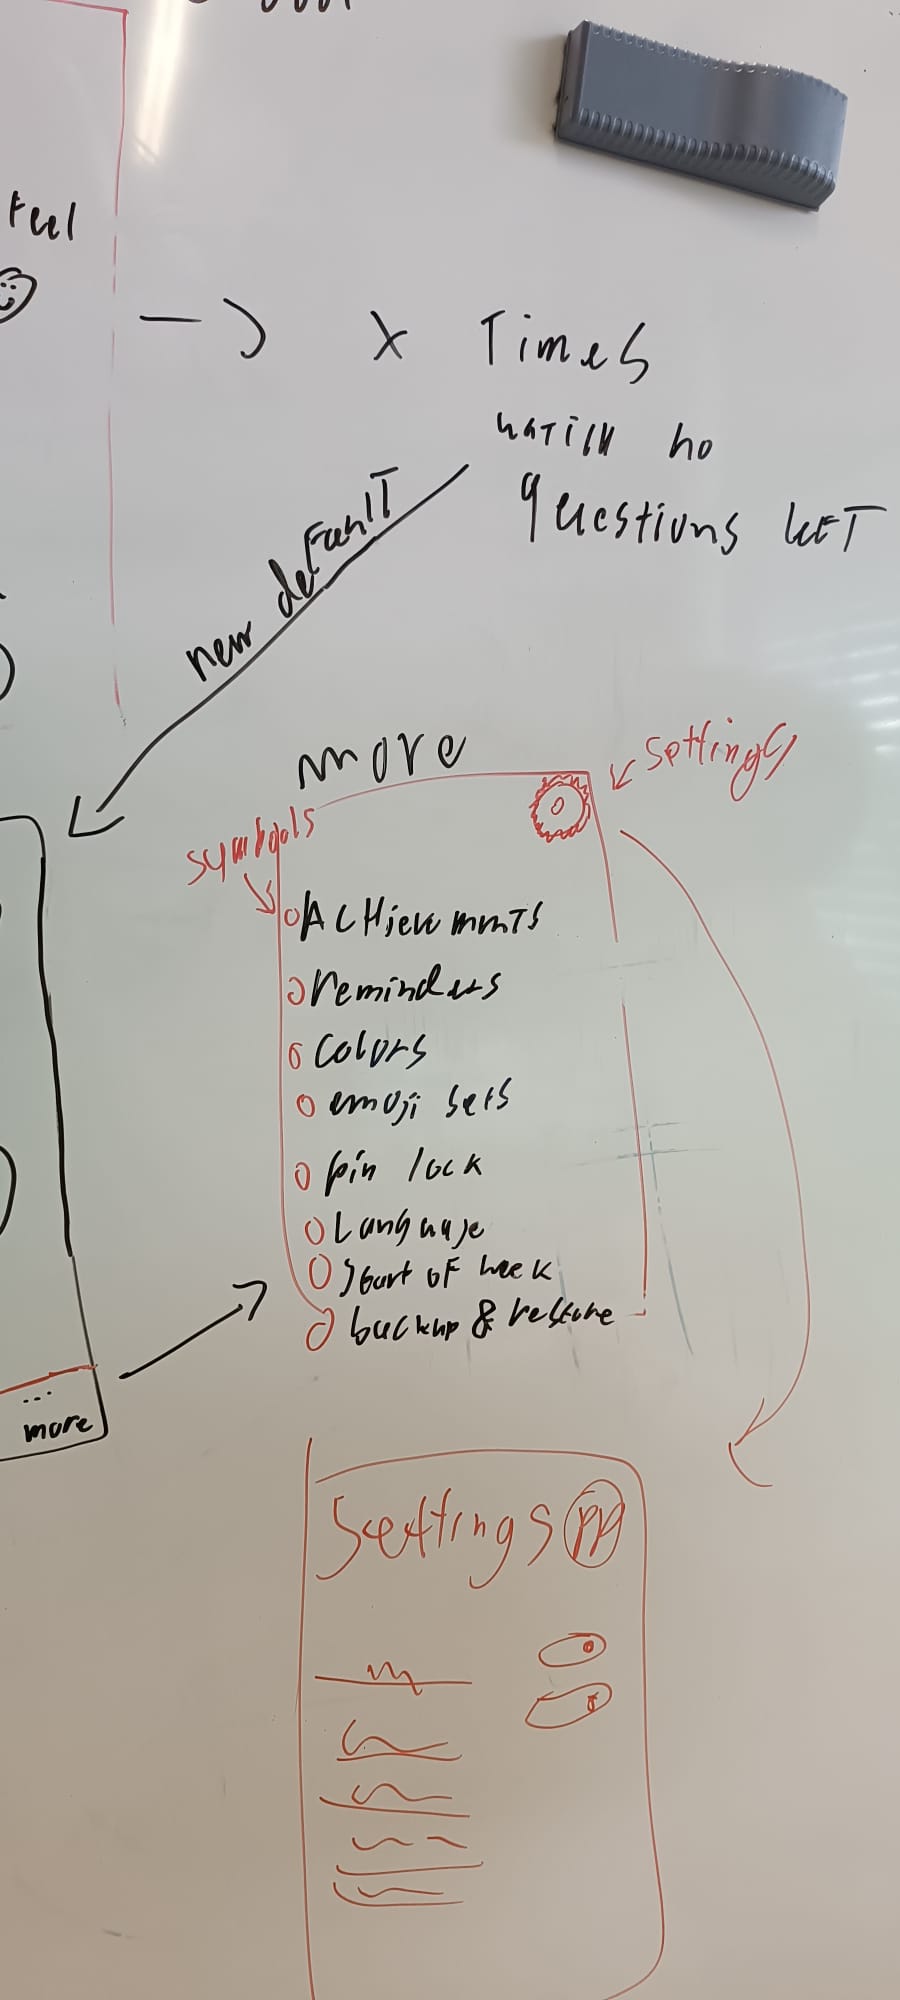 Feel
x Times
until no
questions LEFT
new deFaulT
more
settings
symbols
ACHievmmTS
reminders
Colors
emoji sets
pin lock
Language
Start of week
backup & restore
...
more
Settings PP